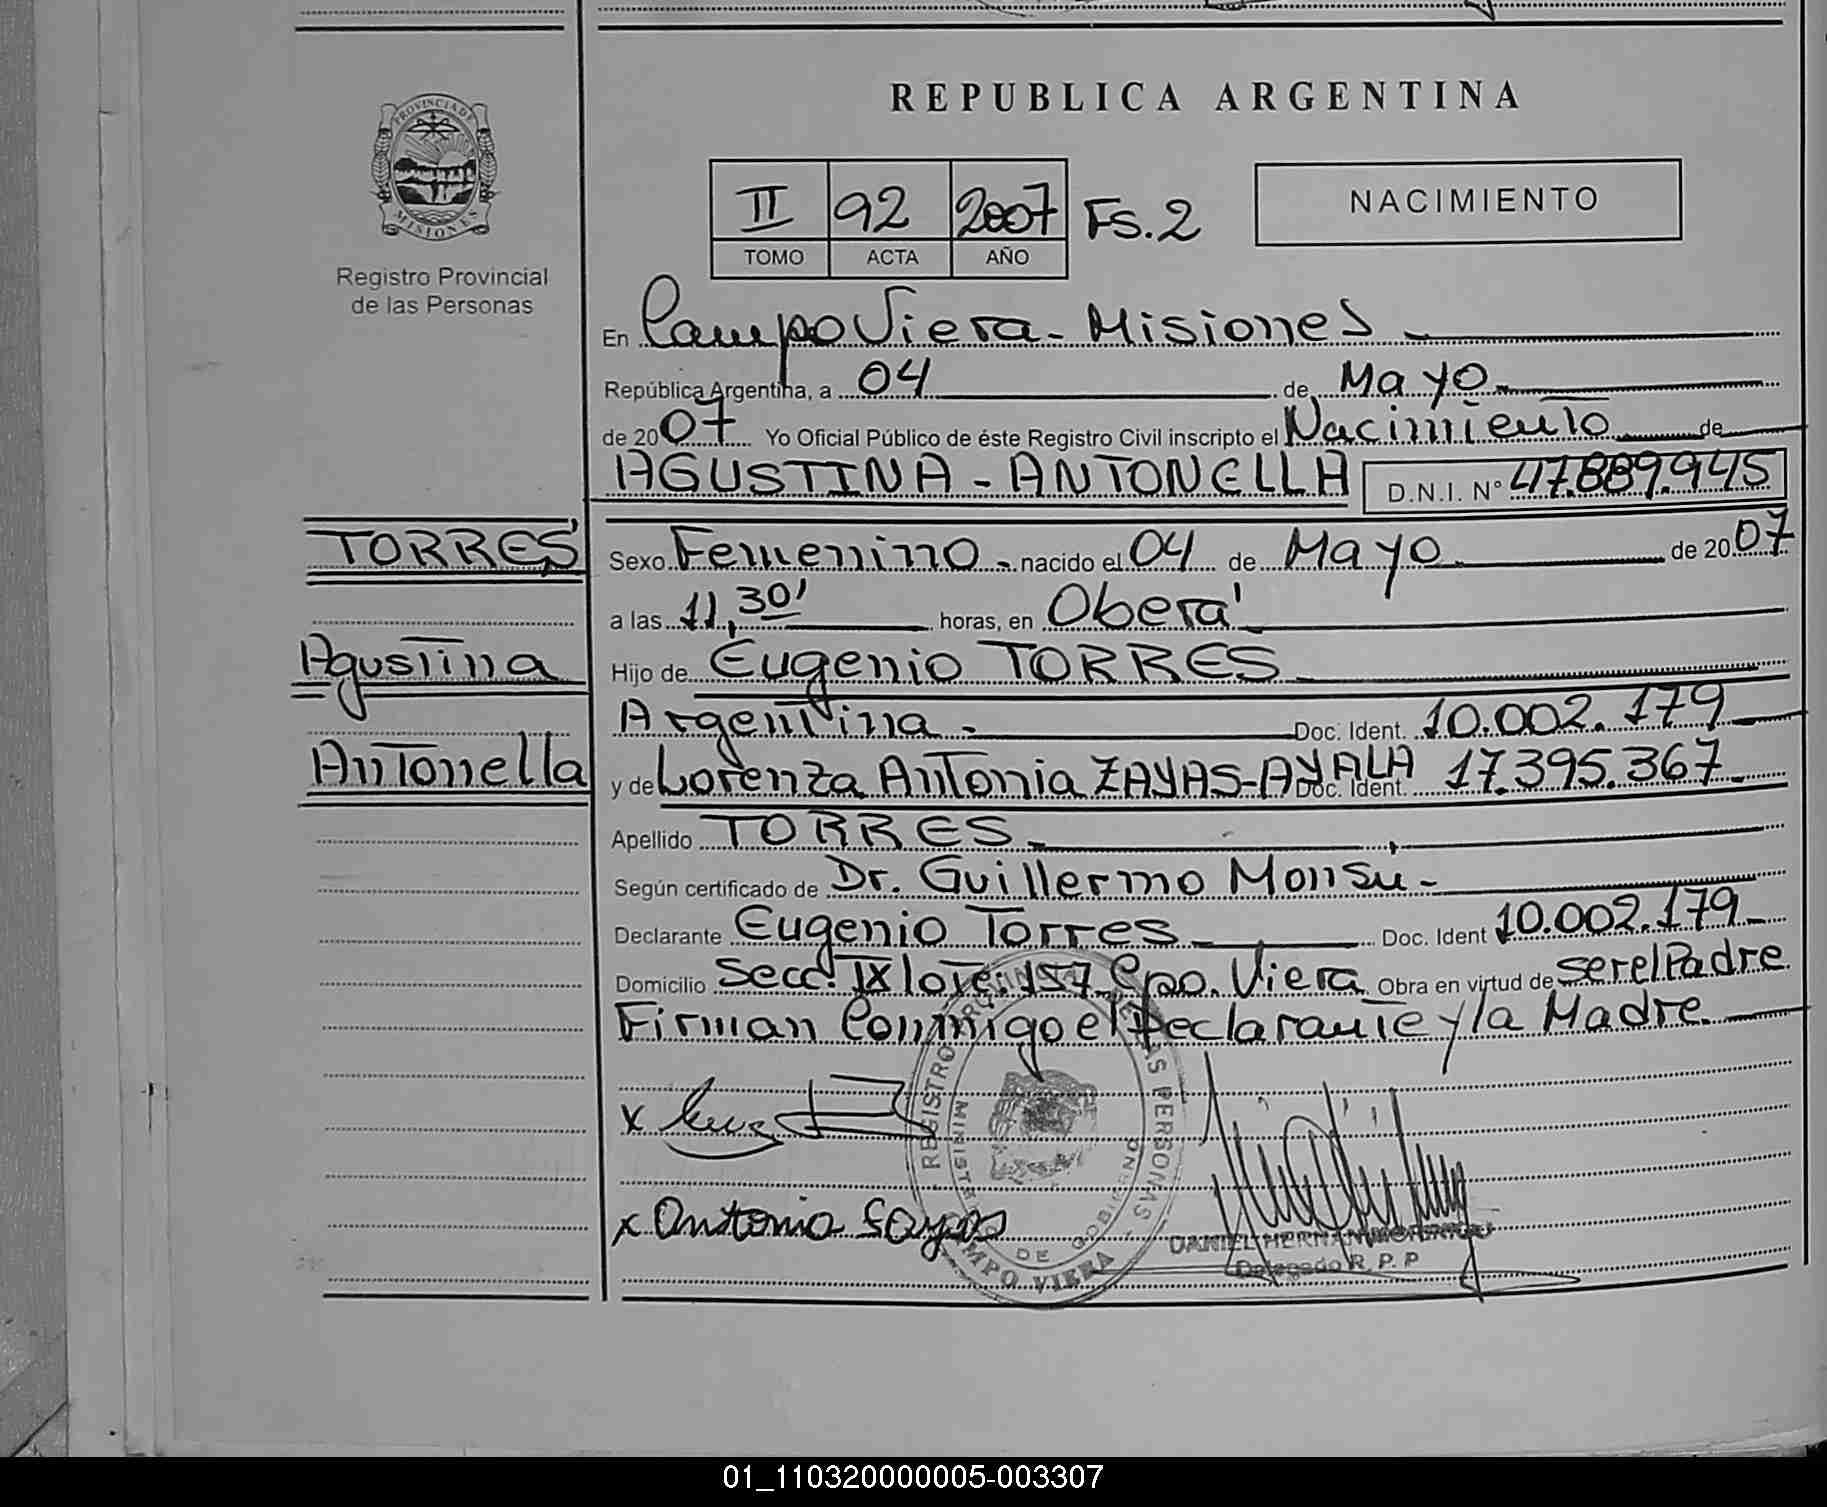 REPUBLICA ARGENTINA
PROVINCIA DE
MISIONES
Registro Provincial
de las Personas
II 92 2007 Fs.2
TOMO ACTA AÑO
NACIMIENTO
En Campo Viera - Misiones
República Argentina, a 04 de Mayo
de 2007 Yo Oficial Público de éste Registro Civil inscripto el Nacimiento de
AGUSTINA - ANTONELLA D.N.I. N° 47.889.945
TORRES
Agustina
Antonella
Sexo Femenino - nacido el 04 de Mayo de 2007
a las 11,30' horas, en Oberá
Hijo de Eugenio TORRES
Argentina - Doc. Ident. 10.002.179
y de Lorenza Antonia ZAYAS-AYALA Doc. Ident. 17.395.367
Apellido TORRES
Según certificado de Dr. Guillermo Monsu -
Declarante Eugenio Torres Doc. Ident 10.002.179
Domicilio Secc. IX lote: 157 Cpo. Viera Obra en virtud de ser el Padre
Firman Conmigo el Declarante y la Madre
x
x Antonia Sayas
REGISTRO PROVINCIAL DE LAS PERSONAS -
CAMPO VIERA
DE GOBIERNO
DANIEL HERNAN
Delegado R. P. P
01_110320000005-003307